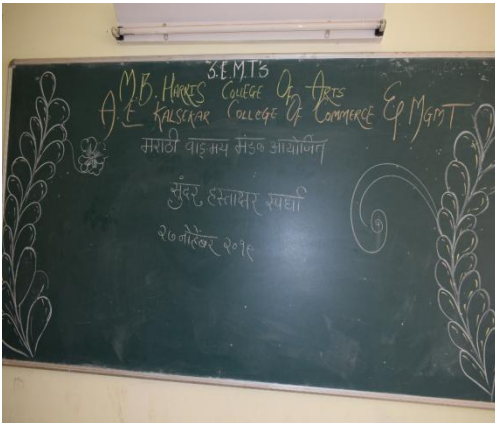 S.E.M.T'S
M.B. HARRIS COLLEGE OF ARTS
A.E. KALSEKAR COLLEGE OF COMMERCE & MGMT
मराठी वाङ्मय मंडळ आयोजित
सुंदर हस्ताक्षर स्पर्धा
२७ नोव्हेंबर २०१९